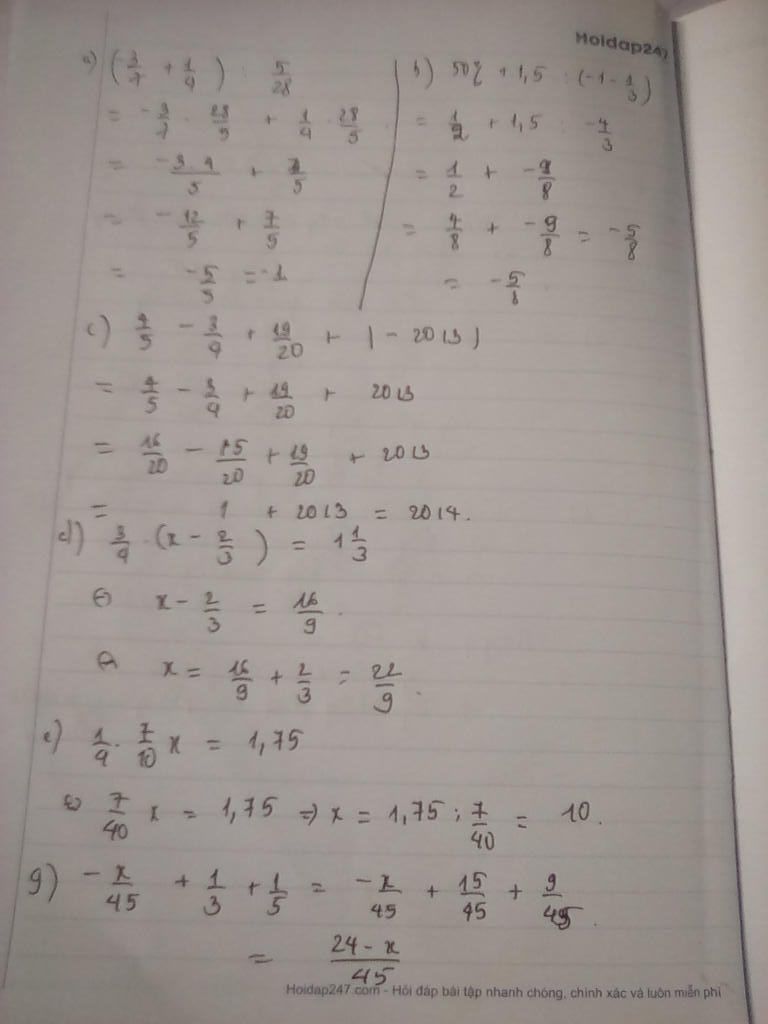 Hoidap247
a) (-3/7 + 1/4) : 5/28
= -3/7 . 28/5 + 1/4 . 28/5
= -3.4/5 + 7/5
= -12/5 + 7/5
= -5/5 = -1
b) 50% + 1,5 : (-1 - 1/3)
= 1/2 + 1,5 : -4/3
= 1/2 + -9/8
= 4/8 + -9/8 = -5/8
= -5/8
c) 4/5 - 3/4 + 19/20 + |-2013|
= 4/5 - 3/4 + 19/20 + 2013
= 16/20 - 15/20 + 19/20 + 2013
= 1 + 2013 = 2014.
d) 3/4 . (x - 2/3) = 1 1/3
⇔ x - 2/3 = 16/9.
⇔ x = 16/9 + 2/3 = 22/9.
e) 1/4 . 7/10 x = 1,75
⇔ 7/40 x = 1,75 => x = 1,75 : 7/40 = 10.
g) -x/45 + 1/3 + 1/5 = -x/45 + 15/45 + 9/45.
= 24-x/45
Hoidap247.com - Hỏi đáp bài tập nhanh chóng, chính xác và luôn miễn phí